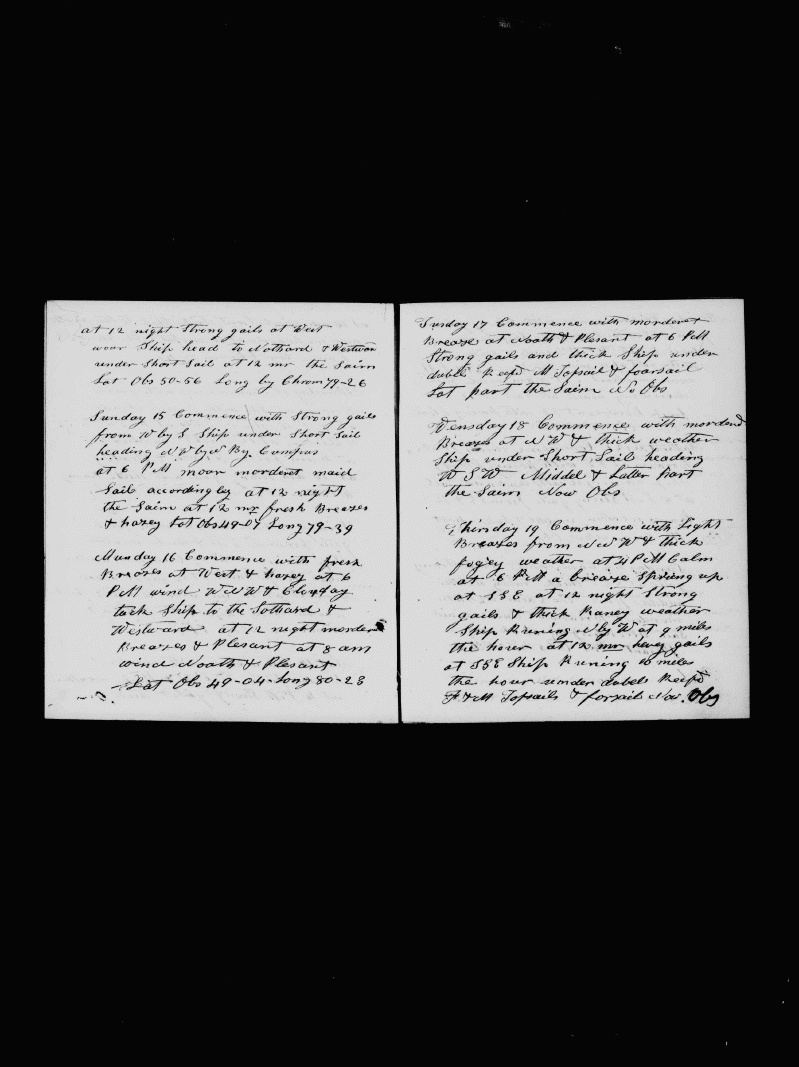 at 12 night Strong gails at West
woor Ship head to Nothard & Westwar
under Short Sail at 12 mr the Saim
Lat Obs 50-56 Long by Chrom 79-26
Sunday 15 Commence with Strong gails
from W by S Ship under Short Sail
heading N W by W By Compus
at 6 P M moor morderet maid
Sail accordingley at 12 night
the Saim at 12 mr fresh Breazes
& hazey Lat Obs 49-07 Long 79-39
Munday 16 Commence with fresh
Breazes at West & hazey at 6
P M wind W N W & Clouday
tack Ship to the Sothard &
Westward at 12 night morderet
Breazes & Plesant at 8 am
wind Noath & Plesant
Lat Obs 49-04 Long 80-23
Tusday 17 Commence with morderet
Breaze at Noath & Plesant at 6 P M
Strong gails and thick Ship under
dubl Reep'd M Topsail & foarsail
Lat part the Saim No Obs
Wensday 18 Commence with morderd
Breazes at N W & thick weather
Ship under Short Sail heading
W S W Middel & Latter Part
the Saim Now Obs
Thirsday 19 Commence with Light
Breazes from N W & thick
fogey weather at 4 P M Calm
at 6 P M a breaze Spring up
at S S E at 12 night Strong
gails & thick Raney weather
Ship Runing N by W at 9 miles
the hour at 12 mr hevey gails
at S S E Ship Runing 10 miles
the hour under dubels Reep'd
F & M Topsails & forsail Now Obs